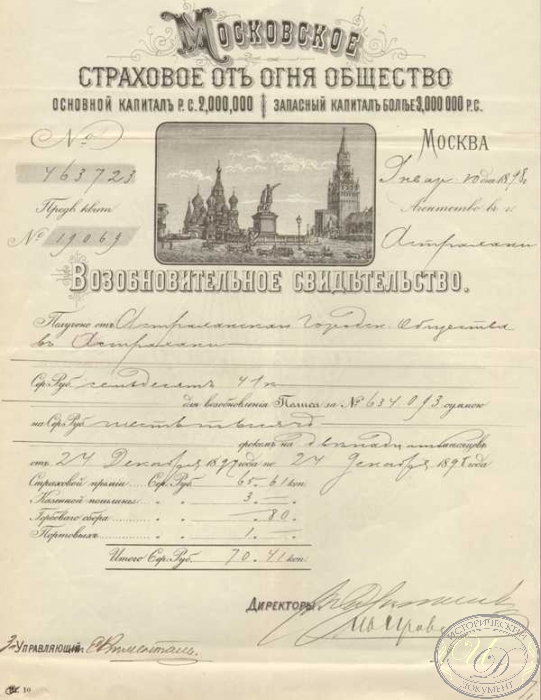 Московское
СТРАХОВОЕ ОТЪ ОГНЯ ОБЩЕСТВО
ОСНОВНОЙ КАПИТАЛЪ Р. С. 2,000,000 ЗАПАСНЫЙ КАПИТАЛЪ БОЛѢЕ 3,000 000 Р. С.
№ МОСКВА
463723 Январ. дня 189 г.
Предв. квит. Агентство въ г.
№ 19069 Астрахани
Возобновительное свидѣтельство.
Получено отъ Астраханскаго Городск. Общества
въ Астрахани
Сер. Руб. семьдесятъ 41 к
для возобновленія Полиса за № 634.093 суммою
на Сер. Руб. шесть тысячъ
срокомъ на двѣнадцать мѣсяцевъ
отъ 24 Декабря 1897 года по 24 Декабря 1898 года
Страховой преміи Сер. Руб. 65. 61 коп.
Казенной пошлины 3. —
Гербоваго сбора — . 80.
Портовыхъ 1. —
Итого Сер. Руб. 70. 41 коп.
Директоры
Управляющій
10
ИСТОРИЧЕСКИЙ
ДОКУМЕНТ